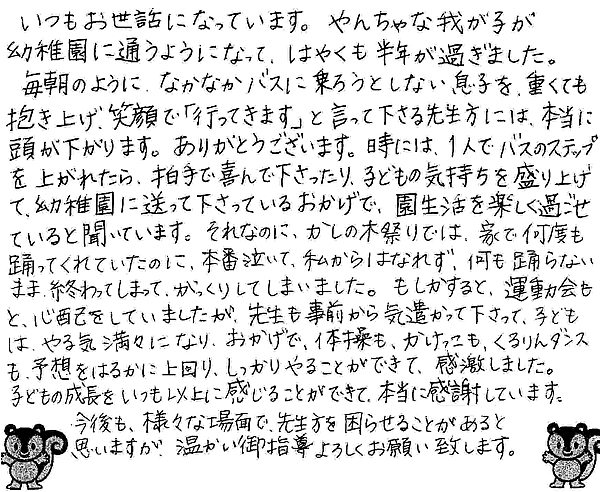 いつもお世話になっています。やんちゃな我が子が
幼稚園に通うようになって、はやくも半年が過ぎました。
毎朝のように、なかなかバスに乗ろうとしない息子を、重くても
抱き上げ、笑顔で「行ってきます」と言って下さる先生方には、本当に
頭が下がります。ありがとうございます。時には、1人でバスのステップ
を上がれたら、拍手で喜んで下さったり、子どもの気持ちを盛り上げ
て、幼稚園に送って下さっているおかげで、園生活を楽しく過ごせ
ていると聞いています。それなのに、かしの木祭りでは、家で何度も
踊ってくれていたのに、本番泣いて、私からはなれず、何も踊らない
まま終わってしまって、がっくりしてしまいました。もしかすると、運動会も
と、心配をしていましたが、先生も事前から気遣かって下さって、子ども
は、やる気満々になり、おかげで、体操も、かけっこも、くるりんダンス
も、予想をはるかに上回り、しっかりやることができて、感激しました。
子どもの成長をいつも以上に感じることができて、本当に感謝しています。
今後も、様々な場面で、先生方を困らせることがあると
思いますが、温かい御指導よろしくお願い致します。